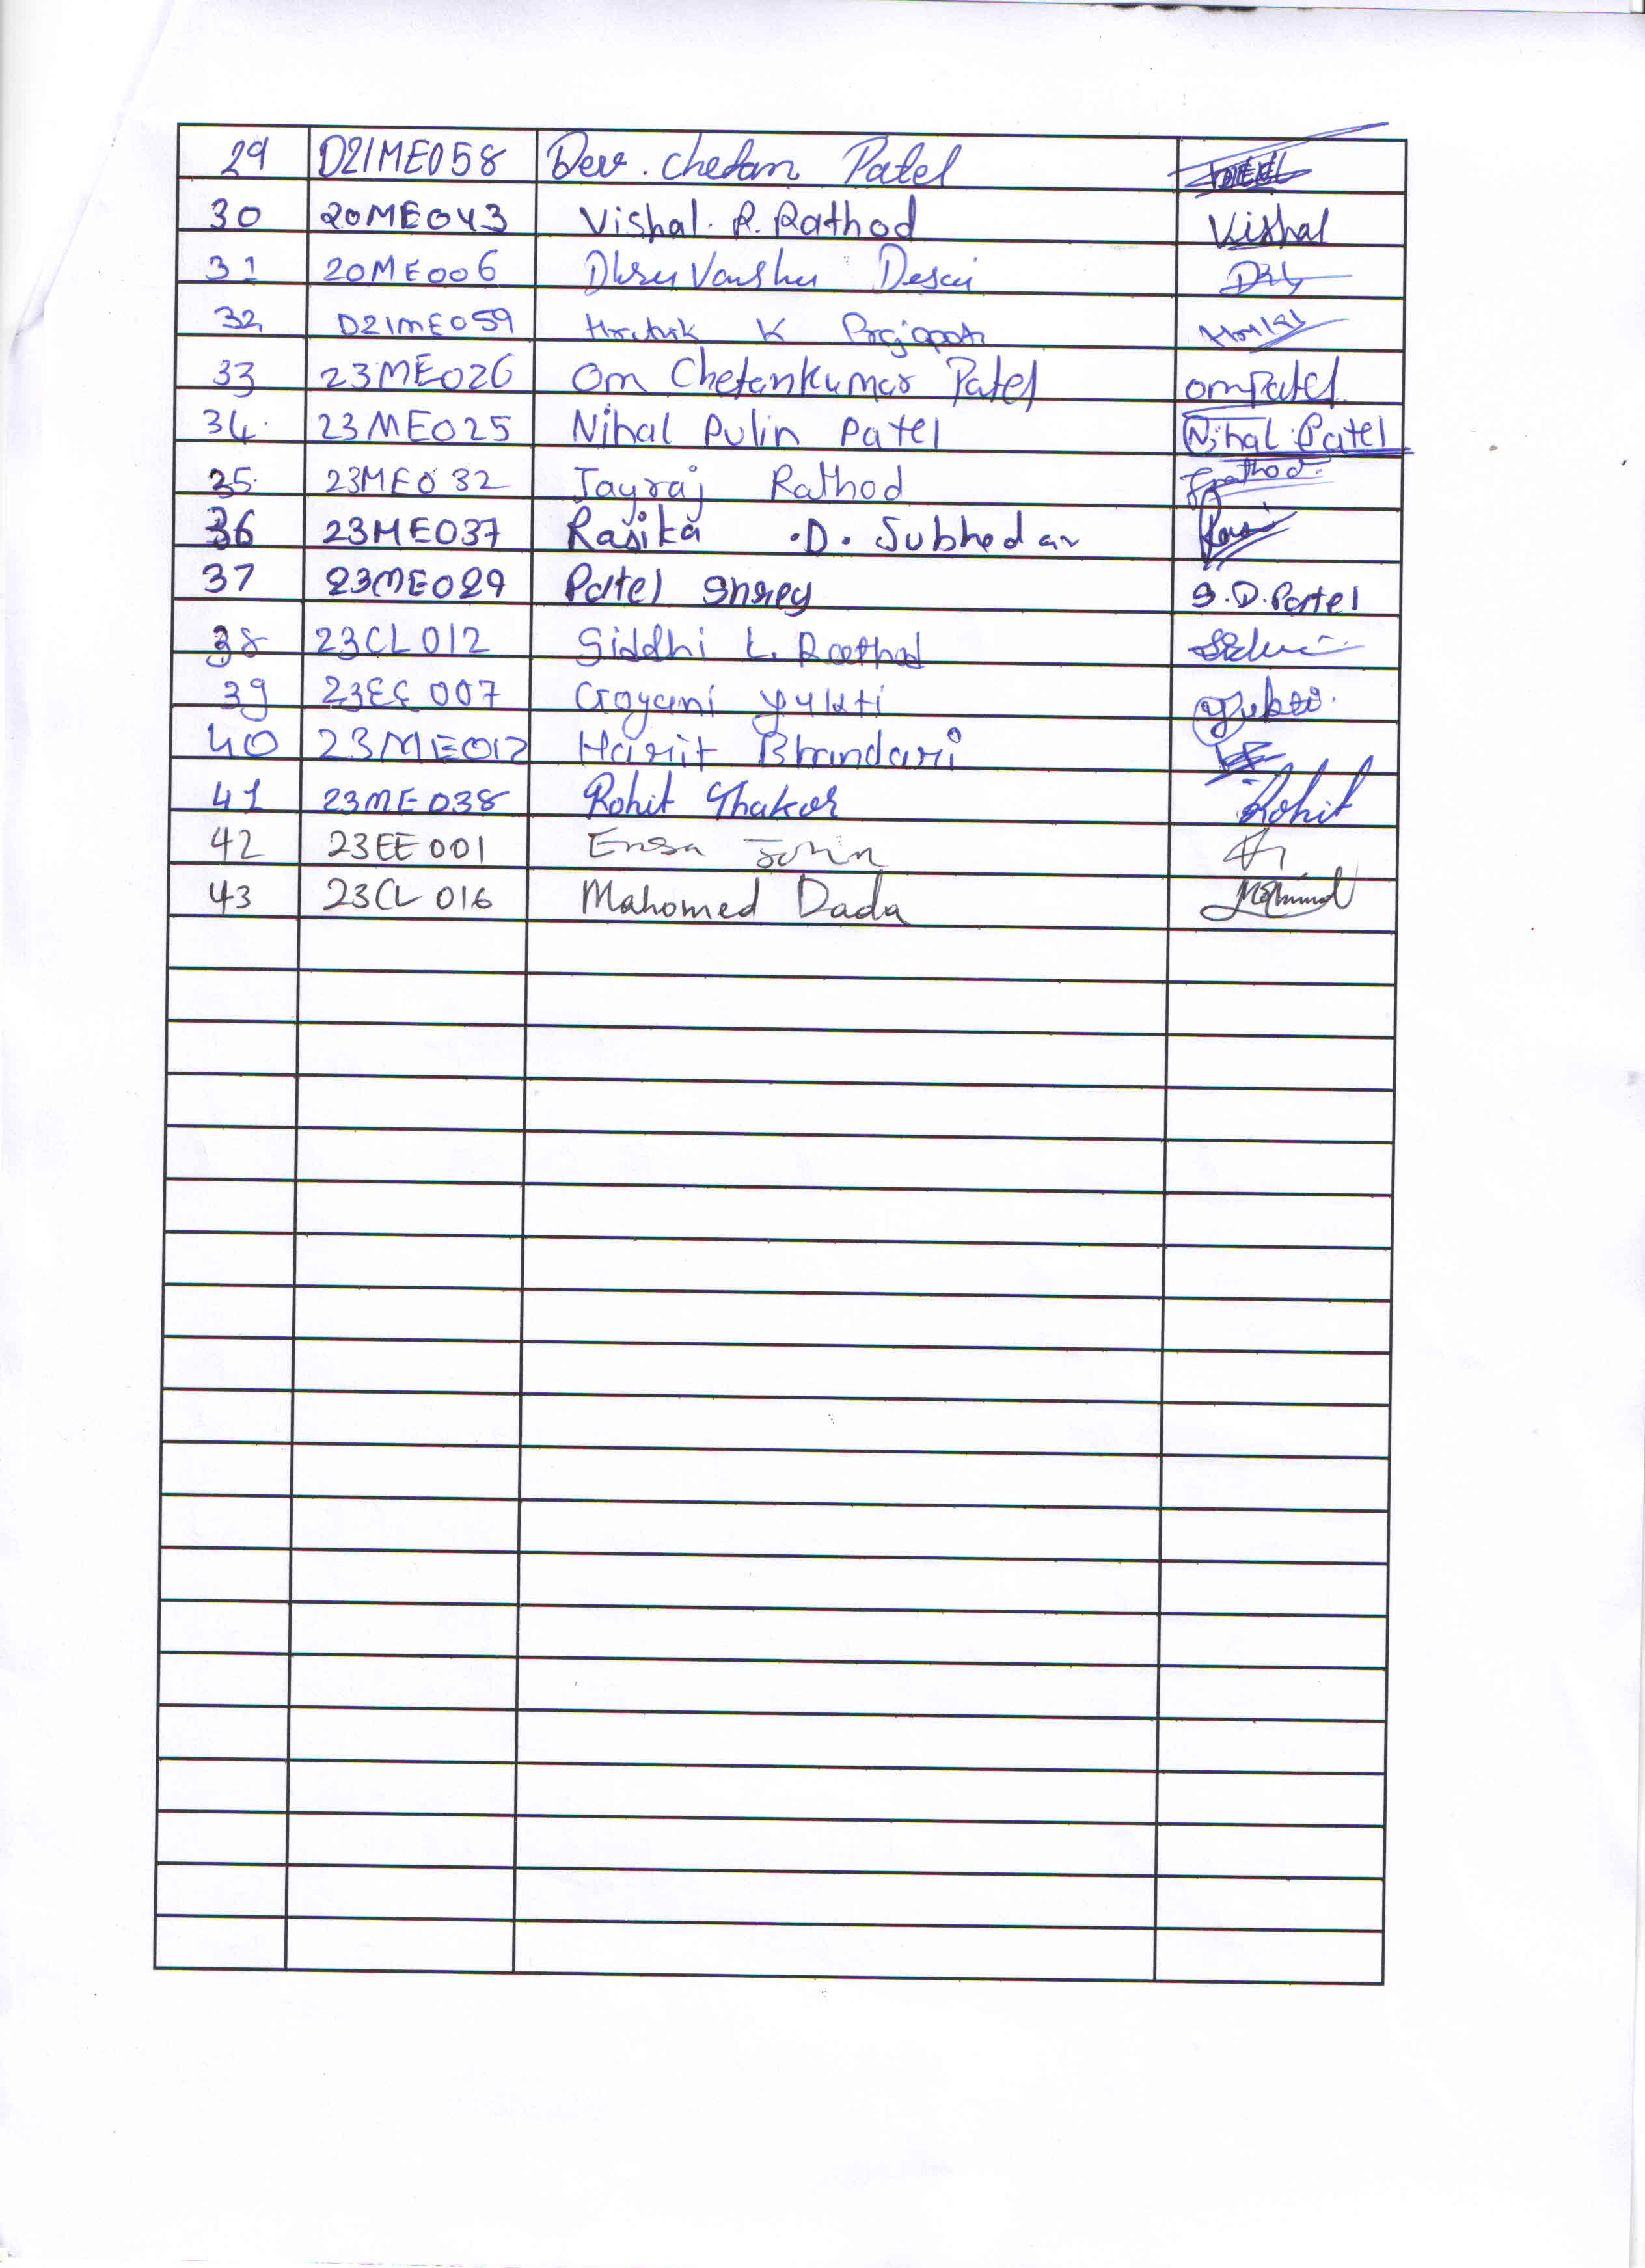 29 D21ME058 Dev. Chetan Patel
30 20ME043 Vishal. R. Rathod Vishal
31 20ME006 Desai
32 D21ME059 K
33 23ME026 Om Chetankumar Patel om Patel
34. 23ME025 Nihal Pulin Patel Nihal Patel
35. 23ME032 Jayraj Rathod Jrathod
36 23ME037 Rasika .D. Subhedar
37 23ME029 Patel Shrey S.D.Patel
38 23CL012 Siddhi L. Rathod
39 23EE007 Goyani Yukti Yukti
40 23ME012 Harit Bhandari
41 23ME038 Rohit Thakor Rohit
42 23EE001 John
43 23CL016 Mahomed Dada